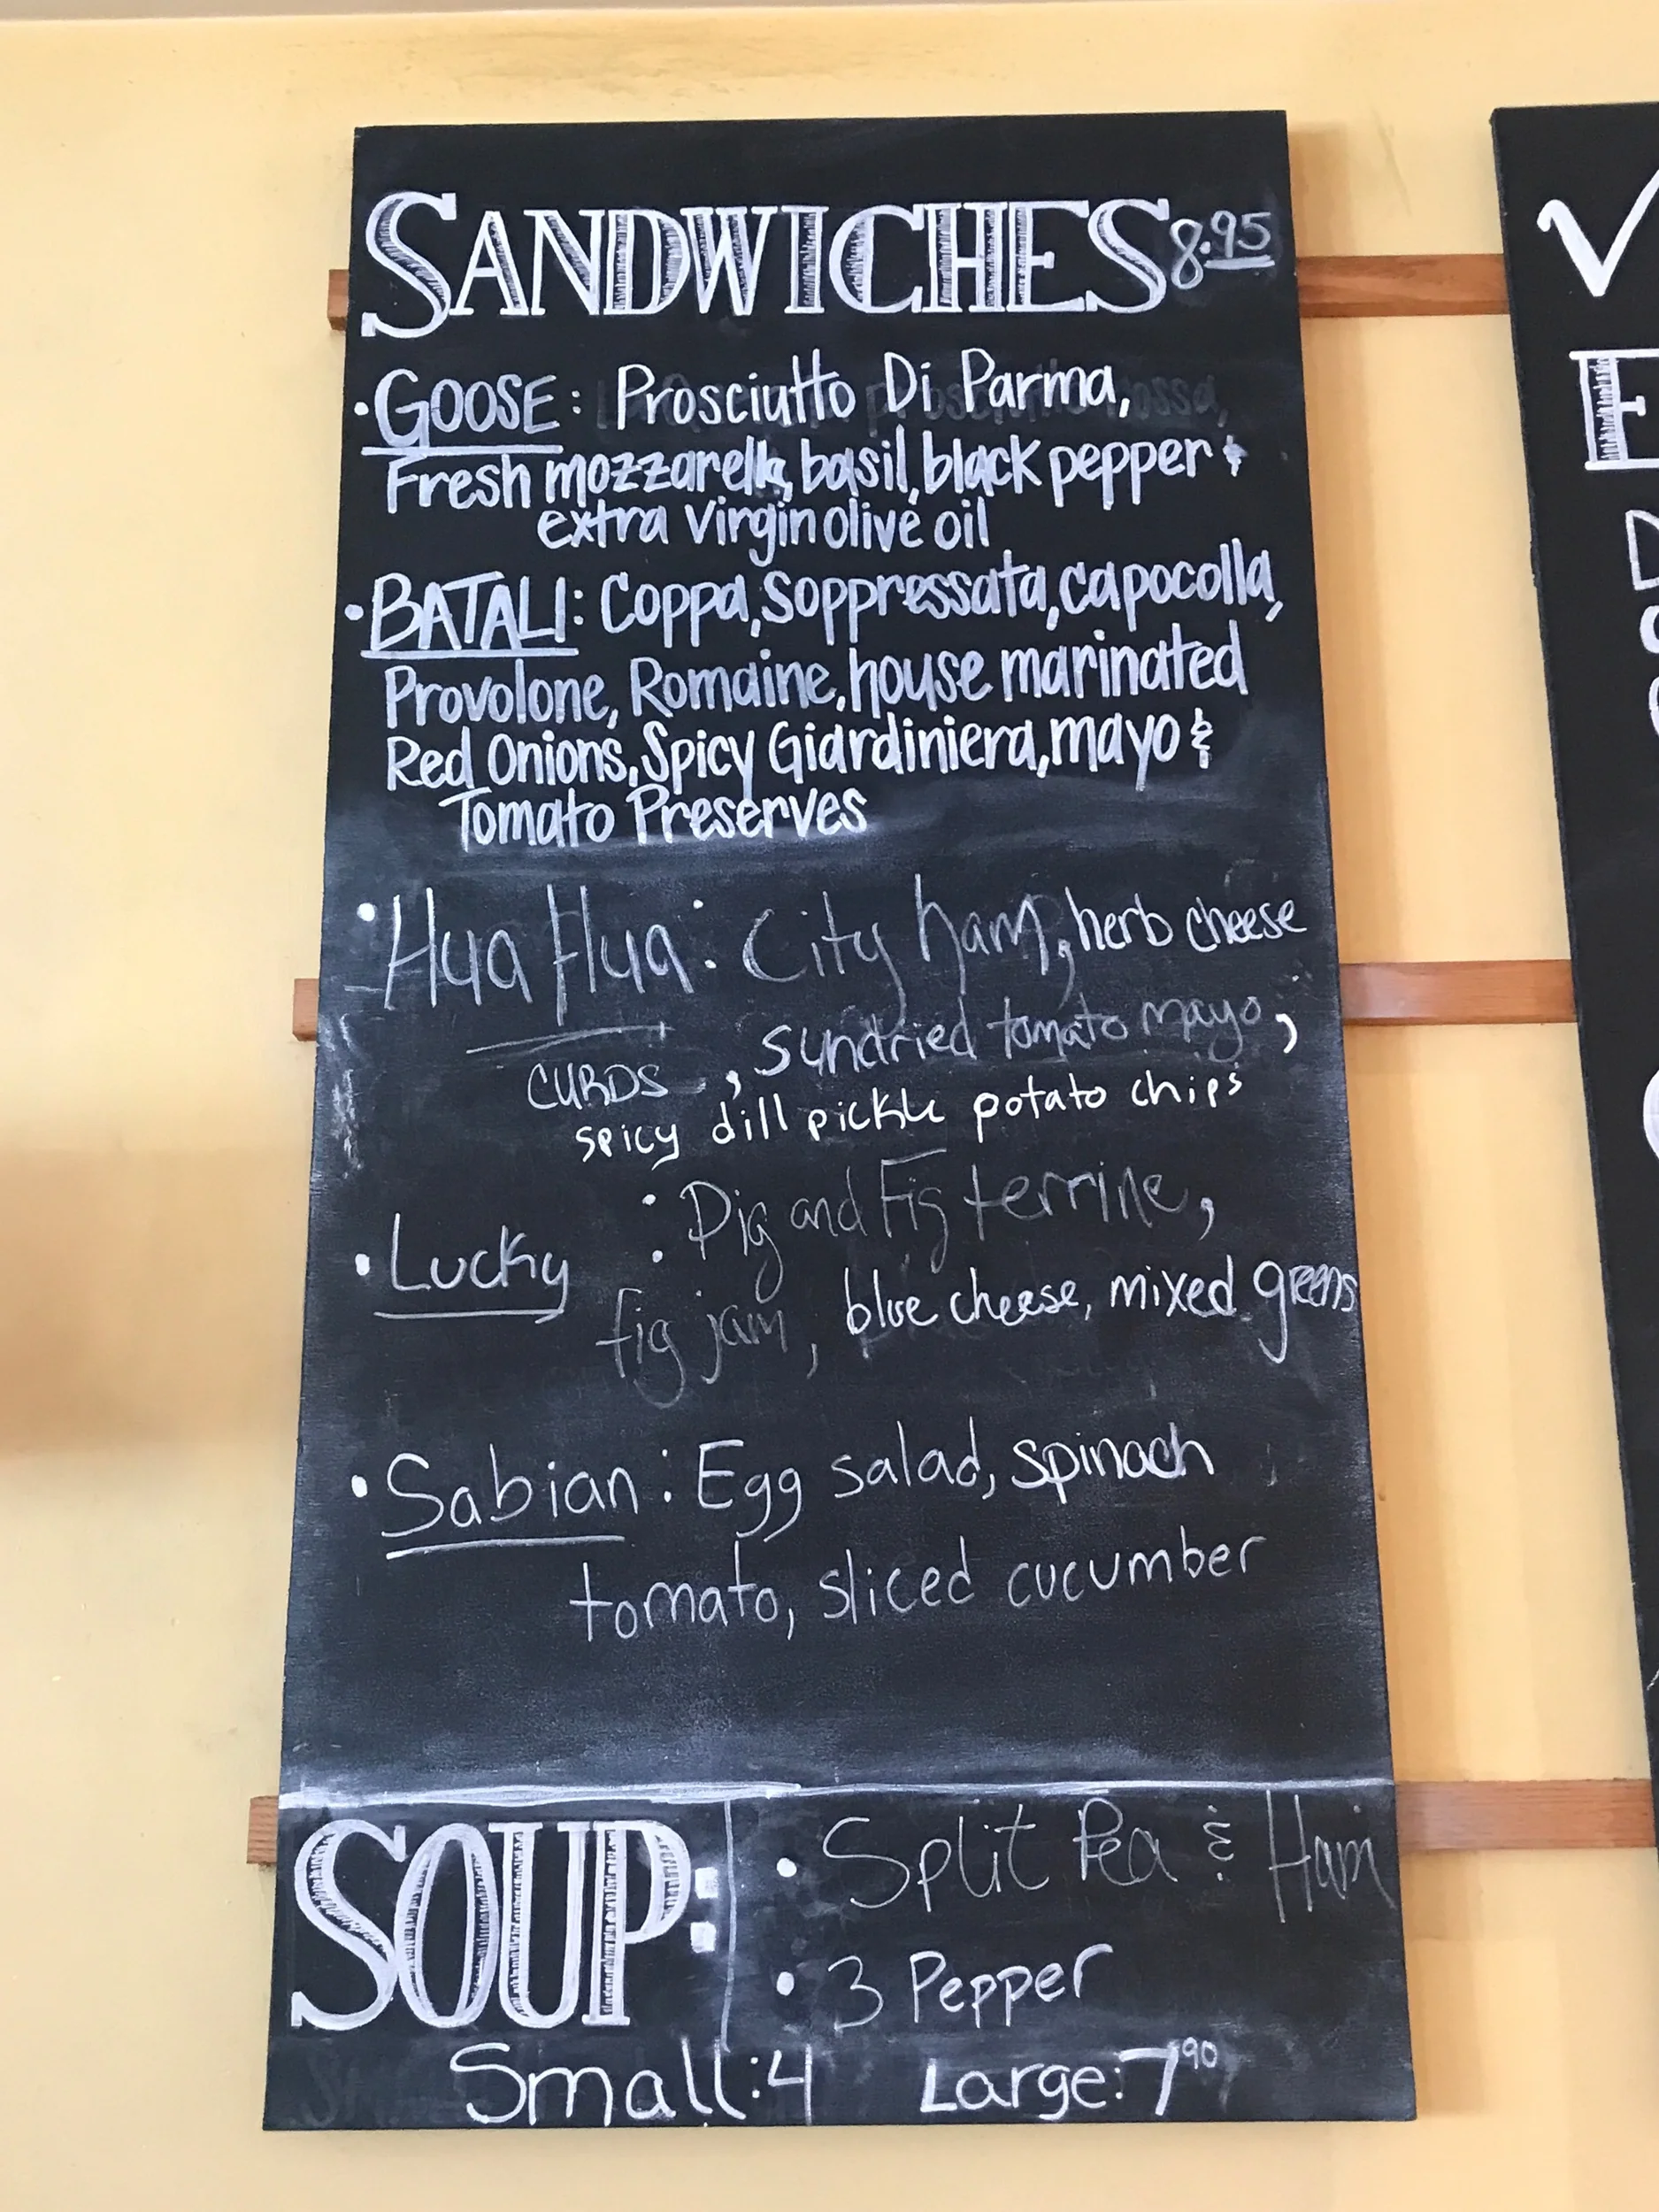 SANDWICHES 8.95
• GOOSE: Prosciutto Di Parma,
Fresh mozzarella, basil, black pepper &
extra virgin olive oil
• BATALI: Coppa, Soppressata, capocolla,
Provolone, Romaine, house marinated
Red Onions, Spicy Giardiniera, mayo &
Tomato Preserves
• Hua Hua: City ham, herb cheese
CURDS, sundried tomato mayo,
spicy dill pickle potato chips
• Lucky : Pig and Fig terrine,
fig jam, blue cheese, mixed greens
• Sabian: Egg salad, spinach
tomato, sliced cucumber
SOUP:
• Split Pea & Ham
• 3 Pepper
Small: 4 Large: 7 90